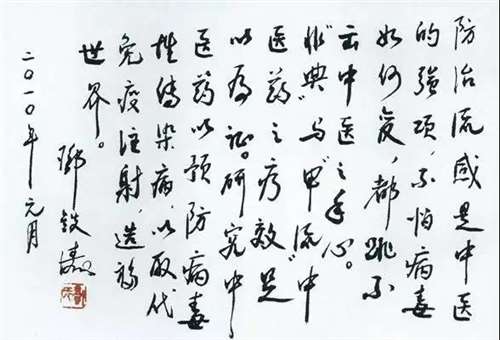 防治流感是中医
的強项，不怕病毒
如何变，都跳不
出中医之手心。
“非典”与“甲流”中
医药之疗效足
以为证。研究中
医药以预防病毒
性传染病，以取代
免疫注射，造福
世界。
邓铁涛
二〇一〇年元月